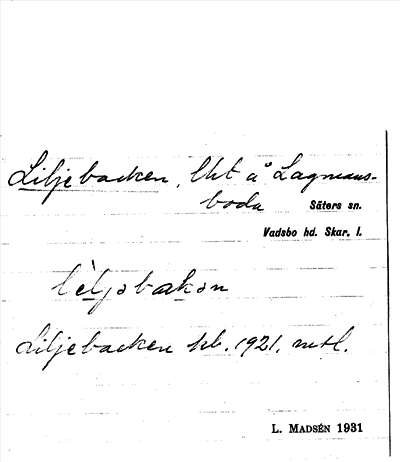 Liljebacken, lht å Lagmans-
boda Säters sn.
Vadsbo hd. Skar. l.
lèljəbakən
Liljebacken hb. 1921. mtl.
L. MADSÉN 1931